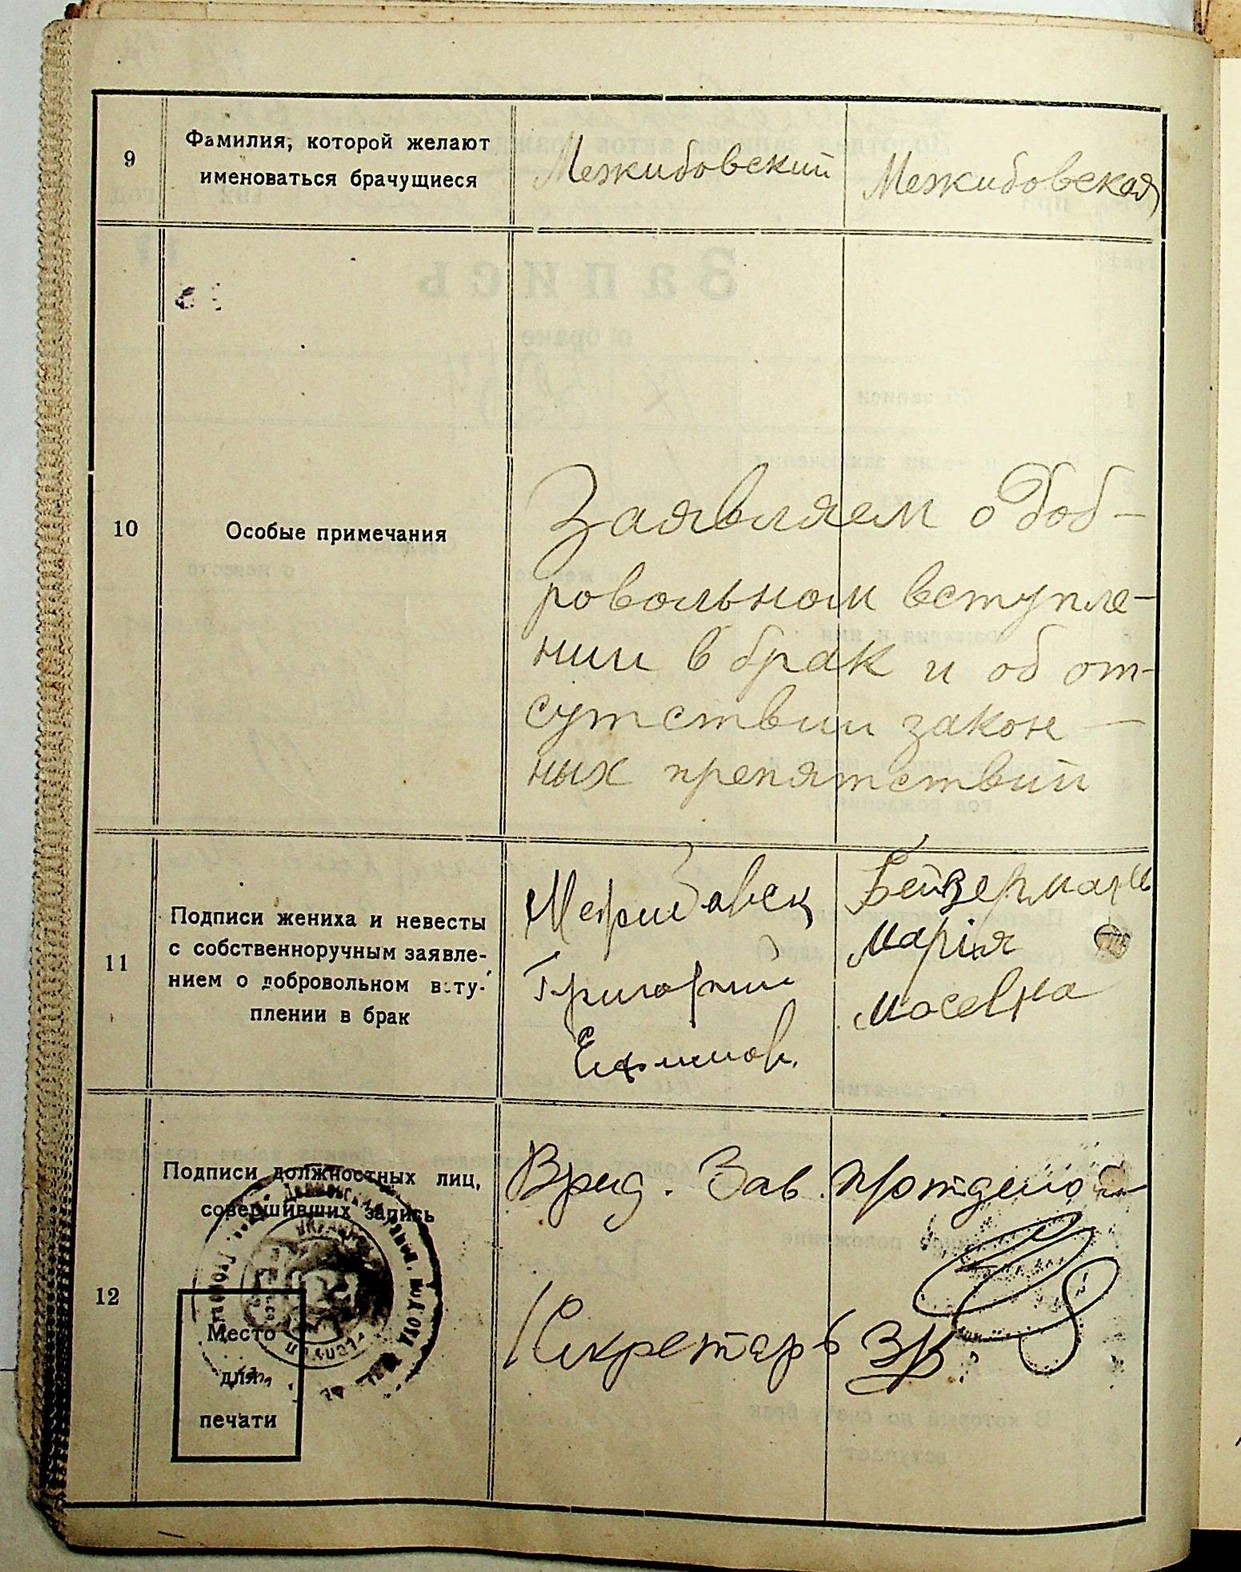 9
Фамилия, которой желают
именоваться брачущиеся
Межибовский
Межибовская
10
Особые примечания
Заявляем о доб-
ровольном вступле-
нии в брак и об от-
сутствии закон-
ных препятствий
11
Подписи жениха и невесты
с собственноручным заявле-
нием о добровольном всту-
плении в брак
Григорий
Ефимов.
Бейдерман
Марія
Мосевна
12
Подписи должностных лиц,
совершивших запись
Врид. Зав.
Секретарь
Место
для
печати